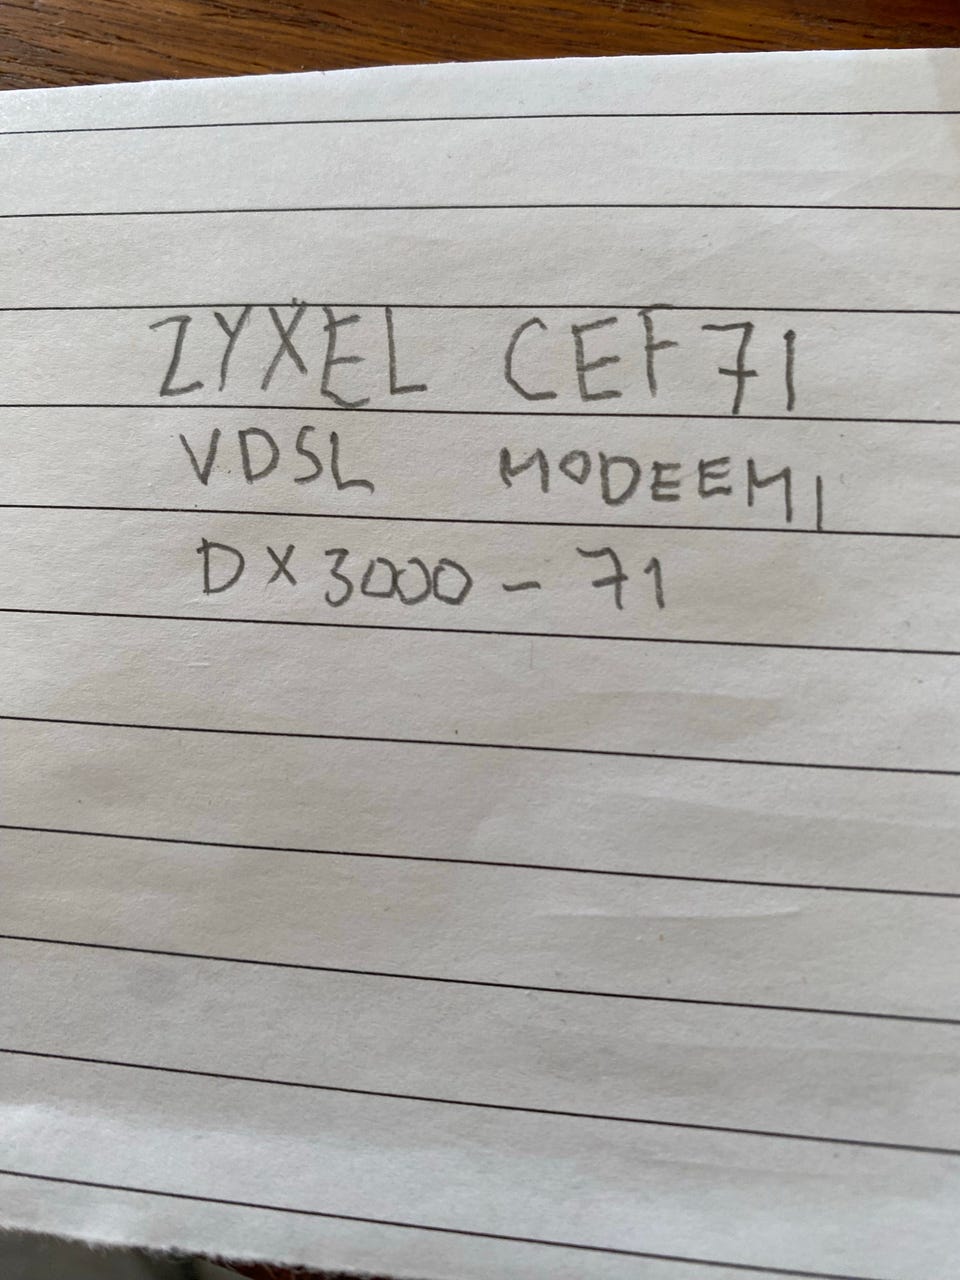 ZYXEL CEF71
VDSL MODEEMI
DX3000-71